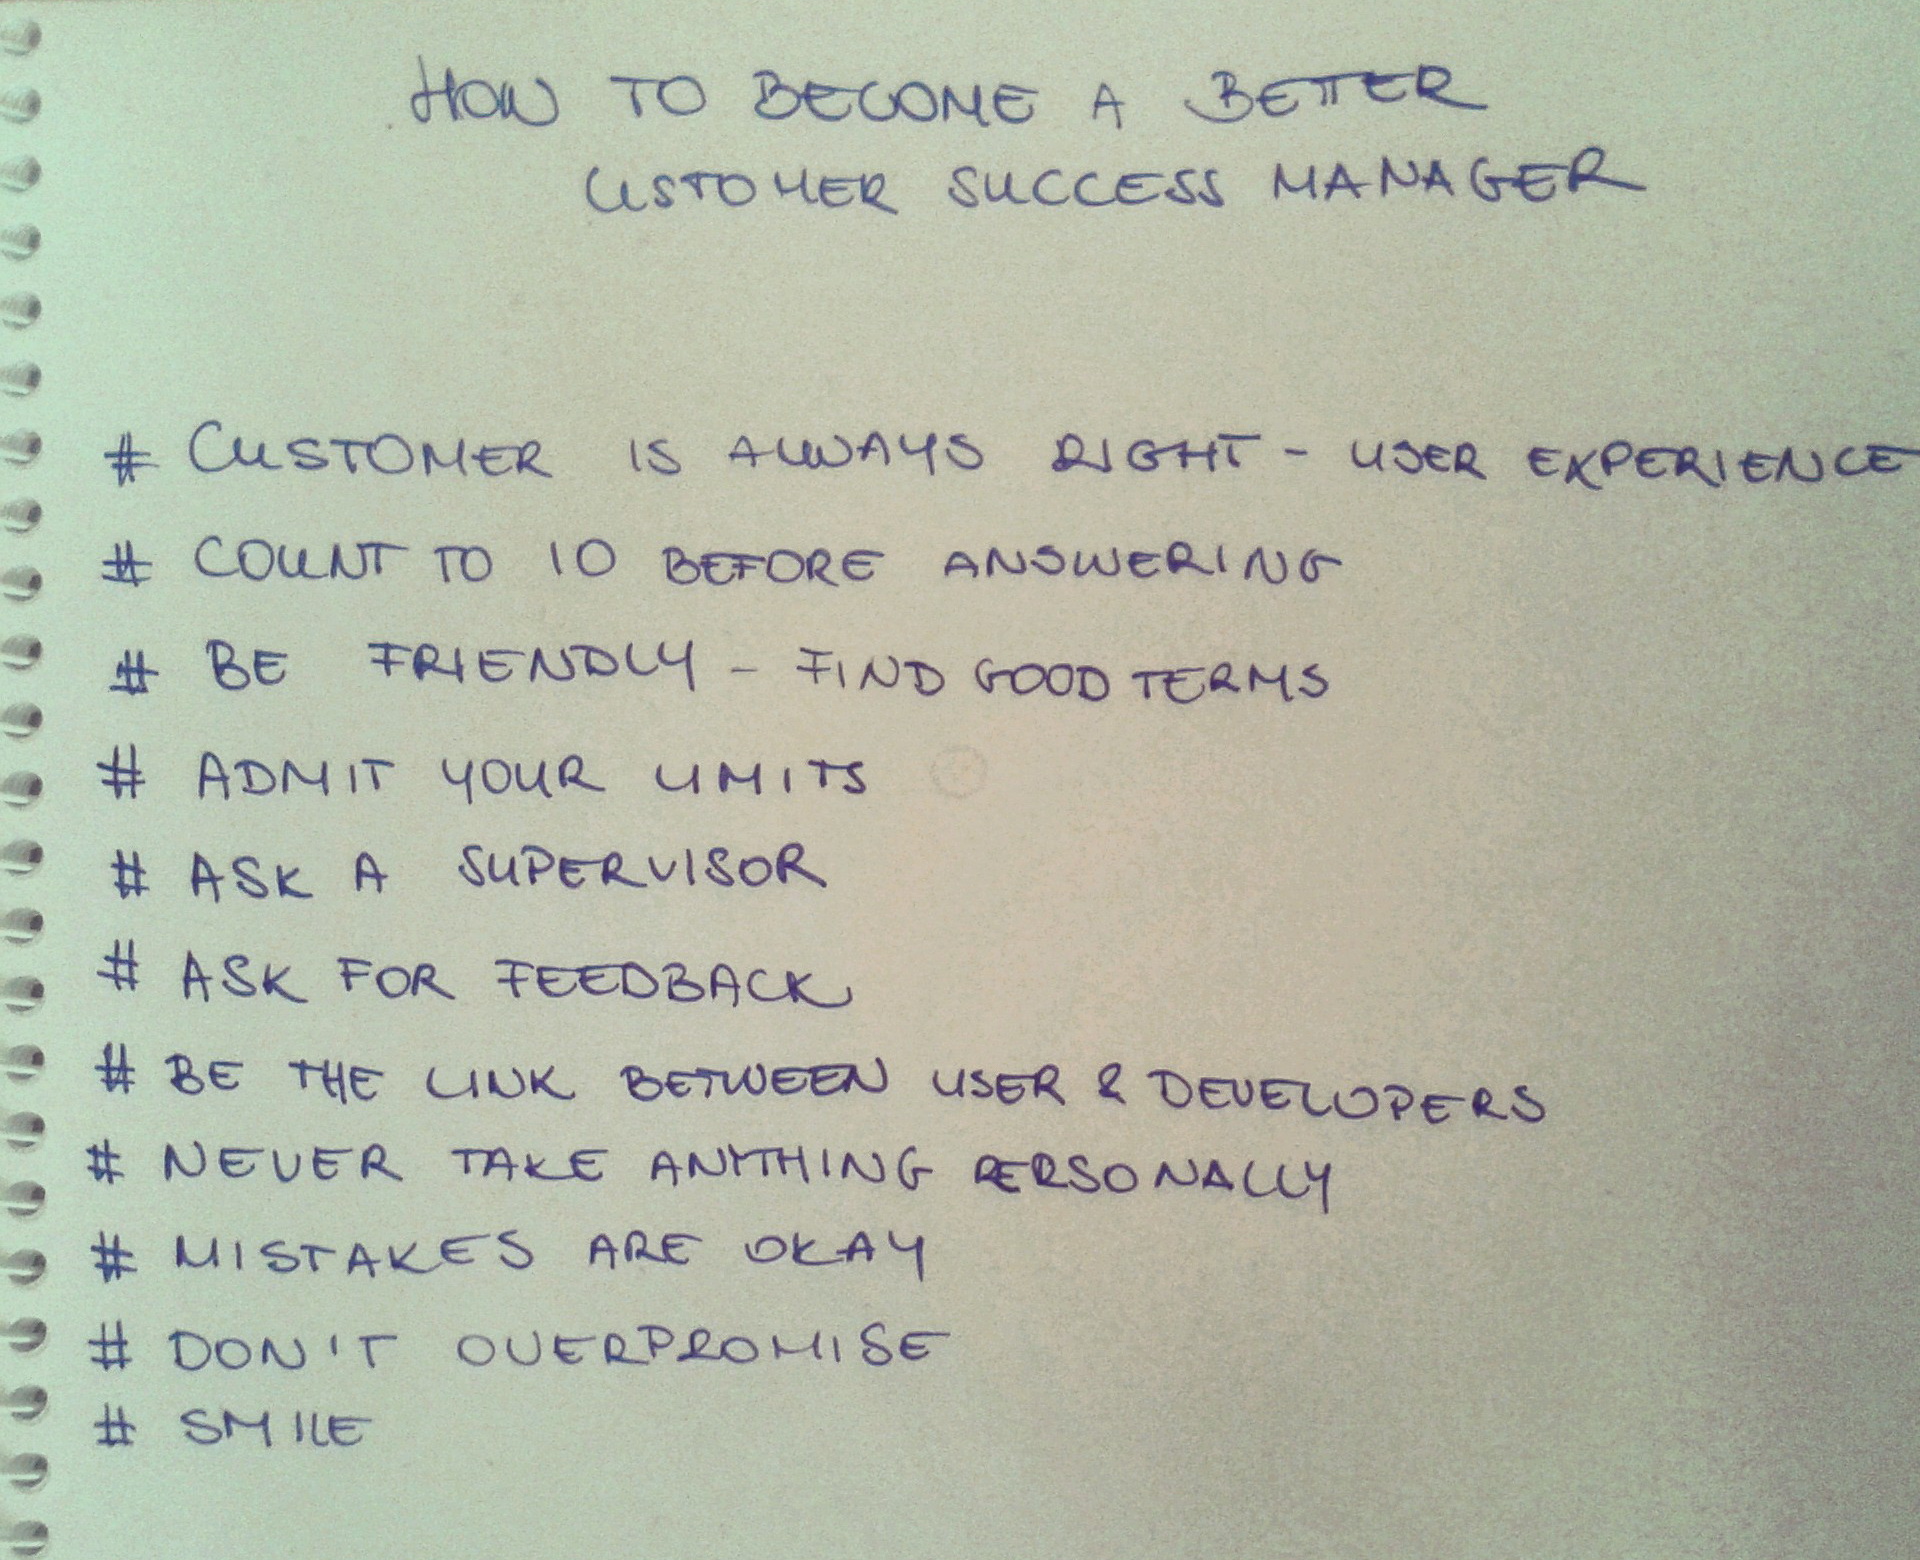 HOW TO BECOME A BETTER
CUSTOMER SUCCESS MANAGER
# CUSTOMER IS ALWAYS RIGHT - USER EXPERIENCE
# COUNT TO 10 BEFORE ANSWERING
# BE FRIENDLY - FIND GOOD TERMS
# ADMIT YOUR LIMITS
# ASK A SUPERVISOR
# ASK FOR FEEDBACK
# BE THE LINK BETWEEN USER & DEVELOPERS
# NEVER TAKE ANYTHING PERSONALLY
# MISTAKES ARE OKAY
# DON'T OVERPROMISE
# SMILE